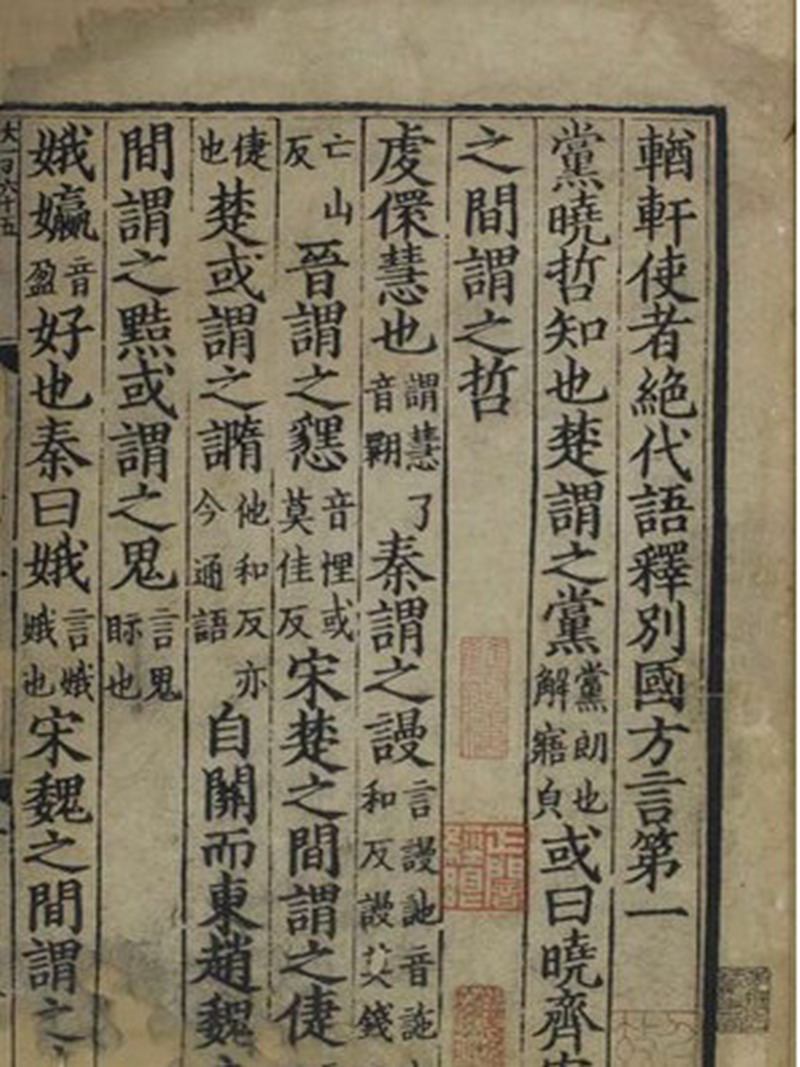 輶軒使者絶代語釋別國方言第一
黨曉哲知也楚謂之黨黨朗也解寤皃或曰曉齊
之間謂之哲
虔儇慧也謂慧了音翾秦謂之謾言謾訑音詑和反謾錢
亡山反晉謂之㦟音悝或莫佳反宋楚之間謂之倢
倢也楚或謂之䜏他和反亦今通語自關而東趙魏
間謂之黠或謂之鬼言鬼眎也
娥㜲音盈好也秦曰娥言娥娥也宋魏之間謂之
大一百六十五